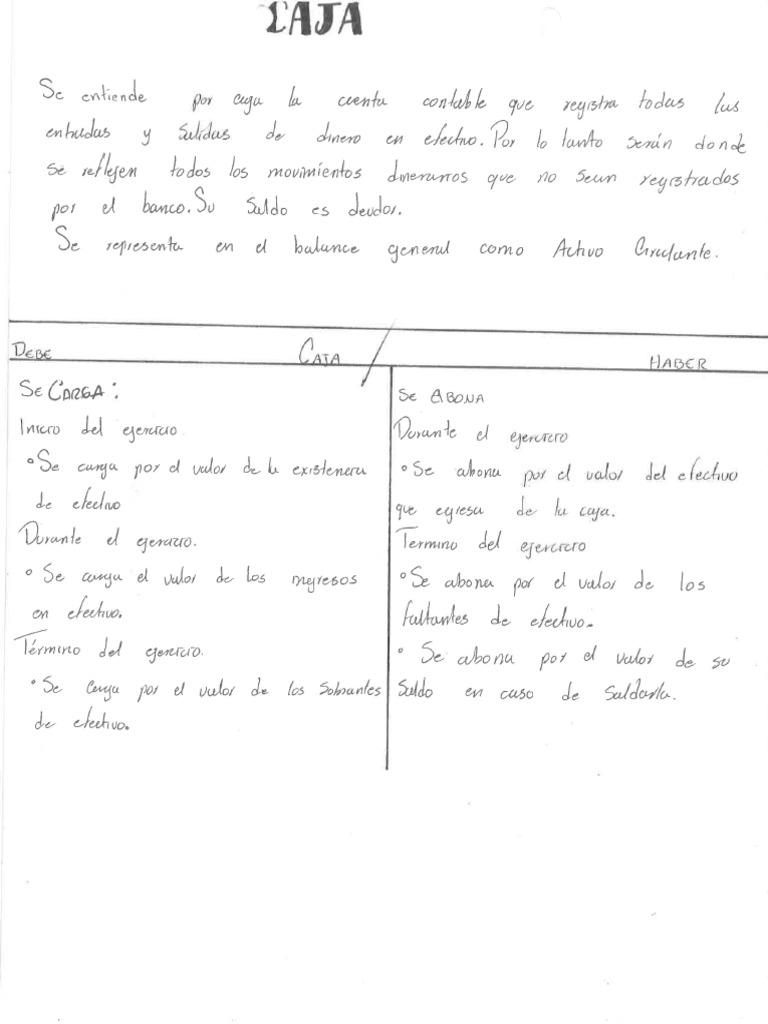 CAJA
Se entiende por caja la cuenta contable que registra todas las
entradas y salidas de dinero en efectivo. Por lo tanto serán donde
se reflejen todos los movimientos dinerarios que no sean registrados
por el banco. Su saldo es deudor.
Se representa en el balance general como Activo Circulante.
DEBE CAJA HABER
SE CARGA:
Inicio del ejercicio
° Se carga por el valor de la existencia
de efectivo
Durante el ejercicio.
° Se carga el valor de los ingresos
en efectivo.
Término del ejercicio.
° Se carga por el valor de los sobrantes
de efectivo.
SE ABONA
Durante el ejercicio
° Se abona por el valor del efectivo
que egresa de la caja.
Termino del ejercicio
° Se abona por el valor de los
faltantes de efectivo.
° Se abona por el valor de su
saldo en caso de saldarla.